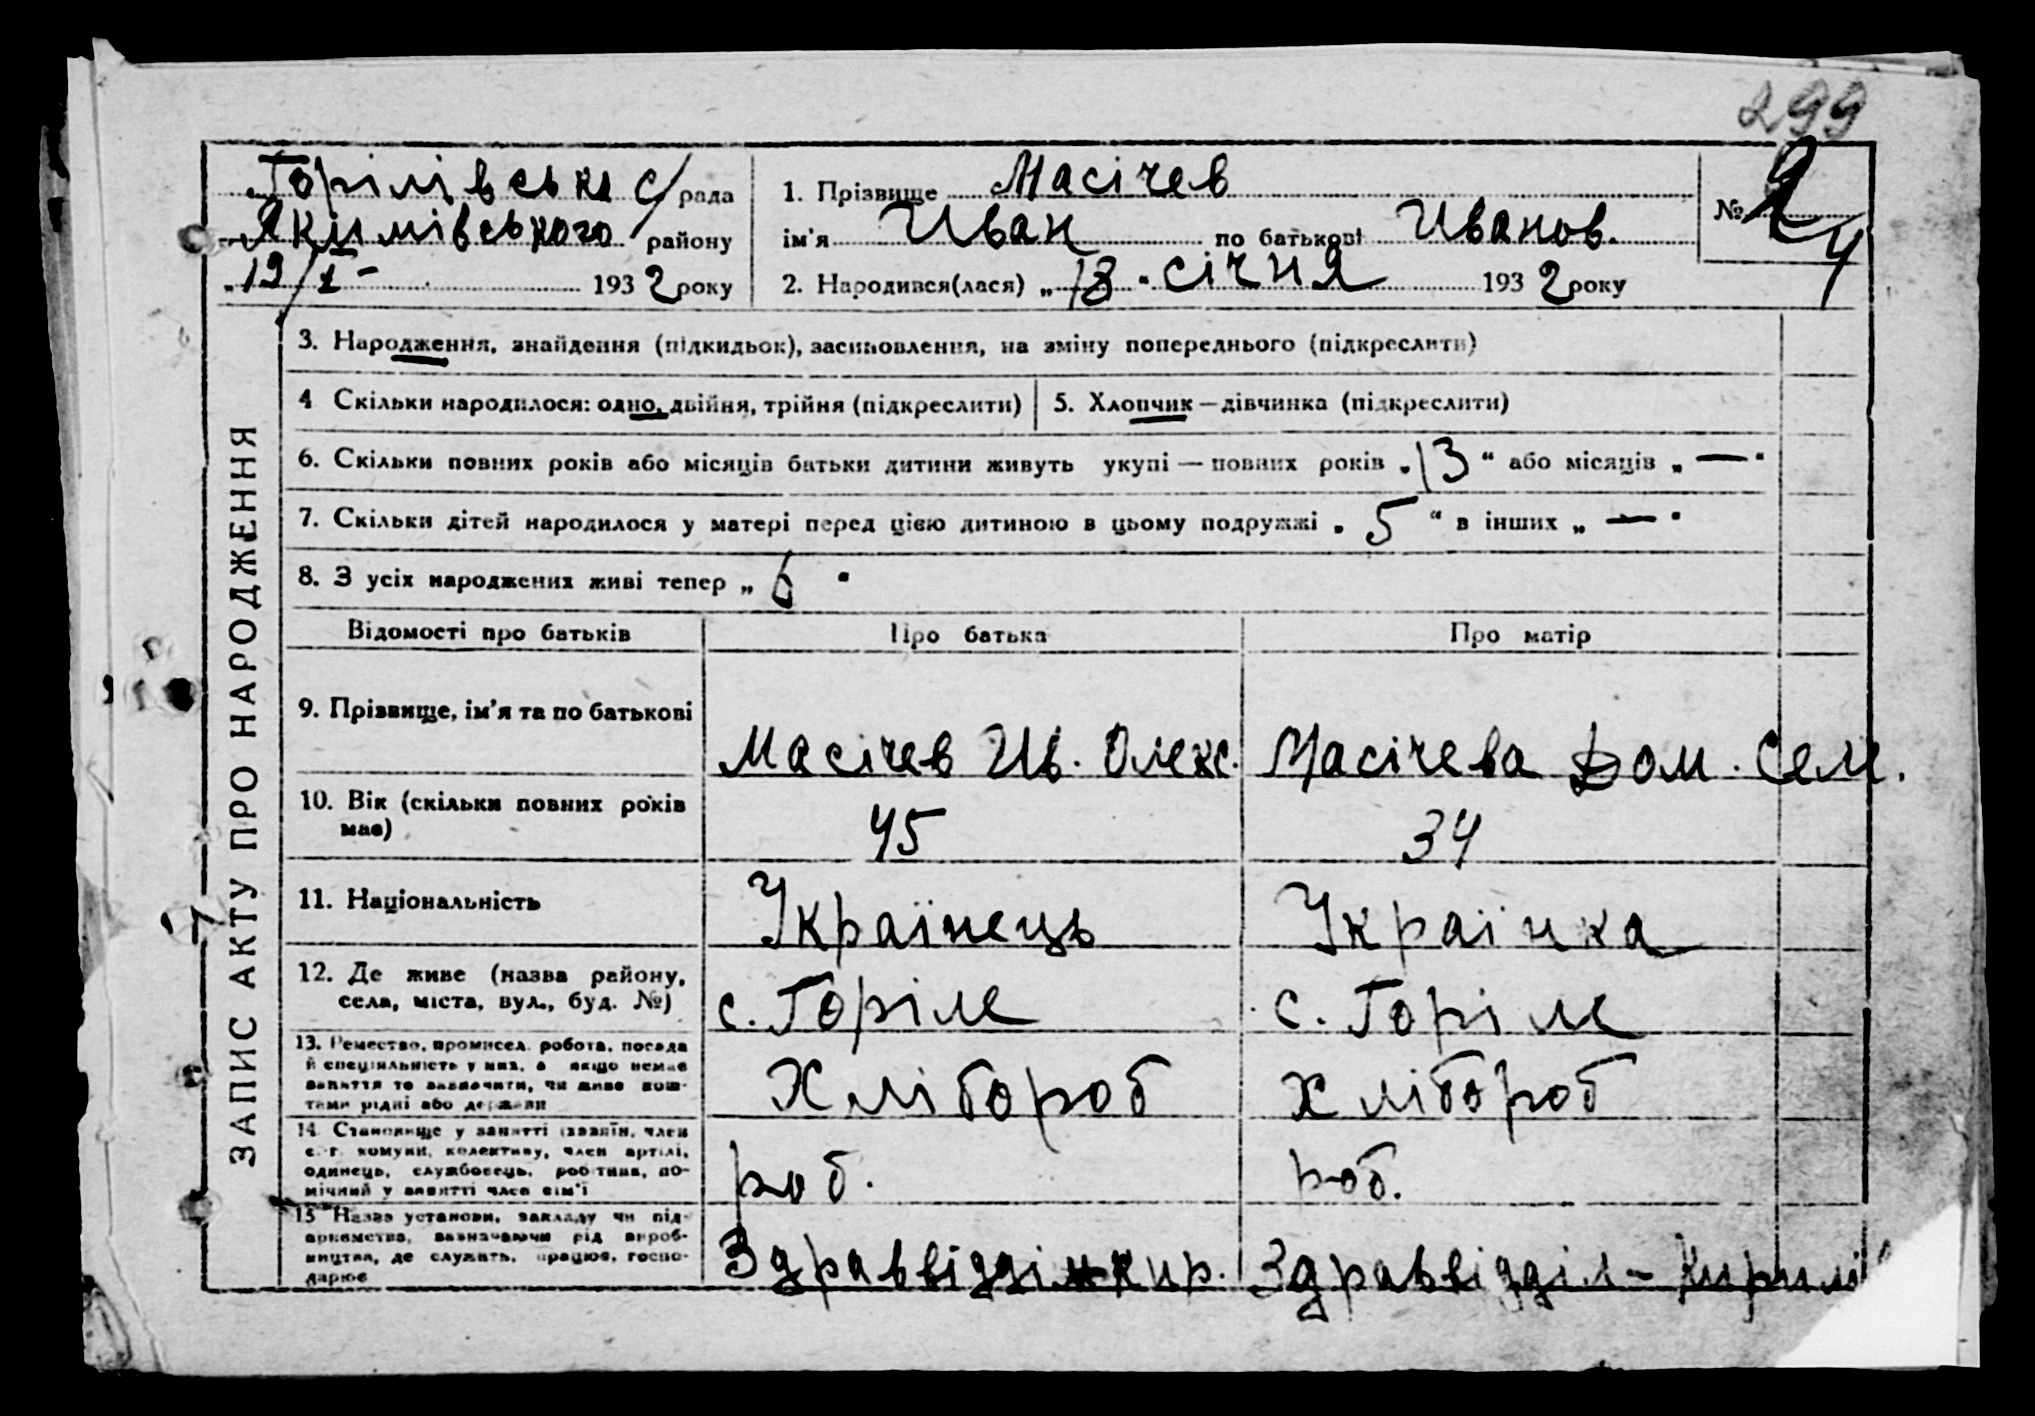 299
Горілівська с/рада
Якимівського району
„19/I - 1932 року
1. Прізвище Масічев
ім'я Иван по батькові Иванов.
2. Народився(лася) „18" січня 1932 року
№ 4
ЗАПИС АКТУ ПРО НАРОДЖЕННЯ
3. Народження, знайдення (підкидьок), засиновлення, на зміну попереднього (підкреслити)
4 Скільки народилося: одно, двійня, трійня (підкреслити)
5. Хлопчик — дівчинка (підкреслити)
6. Скільки повних років або місяців батьки дитини живуть укупі — повних років „13" або місяців „—"
7. Скільки дітей народилося у матері перед цією дитиною в цьому подружжі „5" в інших „—"
8. З усіх народжених живі тепер „6"
Відомості про батьків Про батька Про матір
9. Прізвище, ім'я та по батькові
Масічев Ив. Олекс. Масічева Дом. Сем.
10. Вік (скільки повних років
має)
45 34
11. Національність
Українець Українка
12. Де живе (назва району,
села, міста, вул., буд. №)
с. Горіле с. Горіле
13. Ремество, промисел, робота, посада
й спеціяльність у них, а якщо немає
заняття то зазначити, чи живе кош-
тами рідні або держави
Хлібороб Хлібороб
14. Становище у занятті (хазяїн, член
с.-г. комуни, колективу, член артілі,
одинець, службовець, робітник, по-
мічний у занятті член сім'ї
роб. роб.
15 Назва установи, закладу чи під-
приємства, зазначаючи рід вироб-
ництва, де служать, працює, госпо-
дарює
Здраввідділ Кир. Здраввідділ - Кирилі